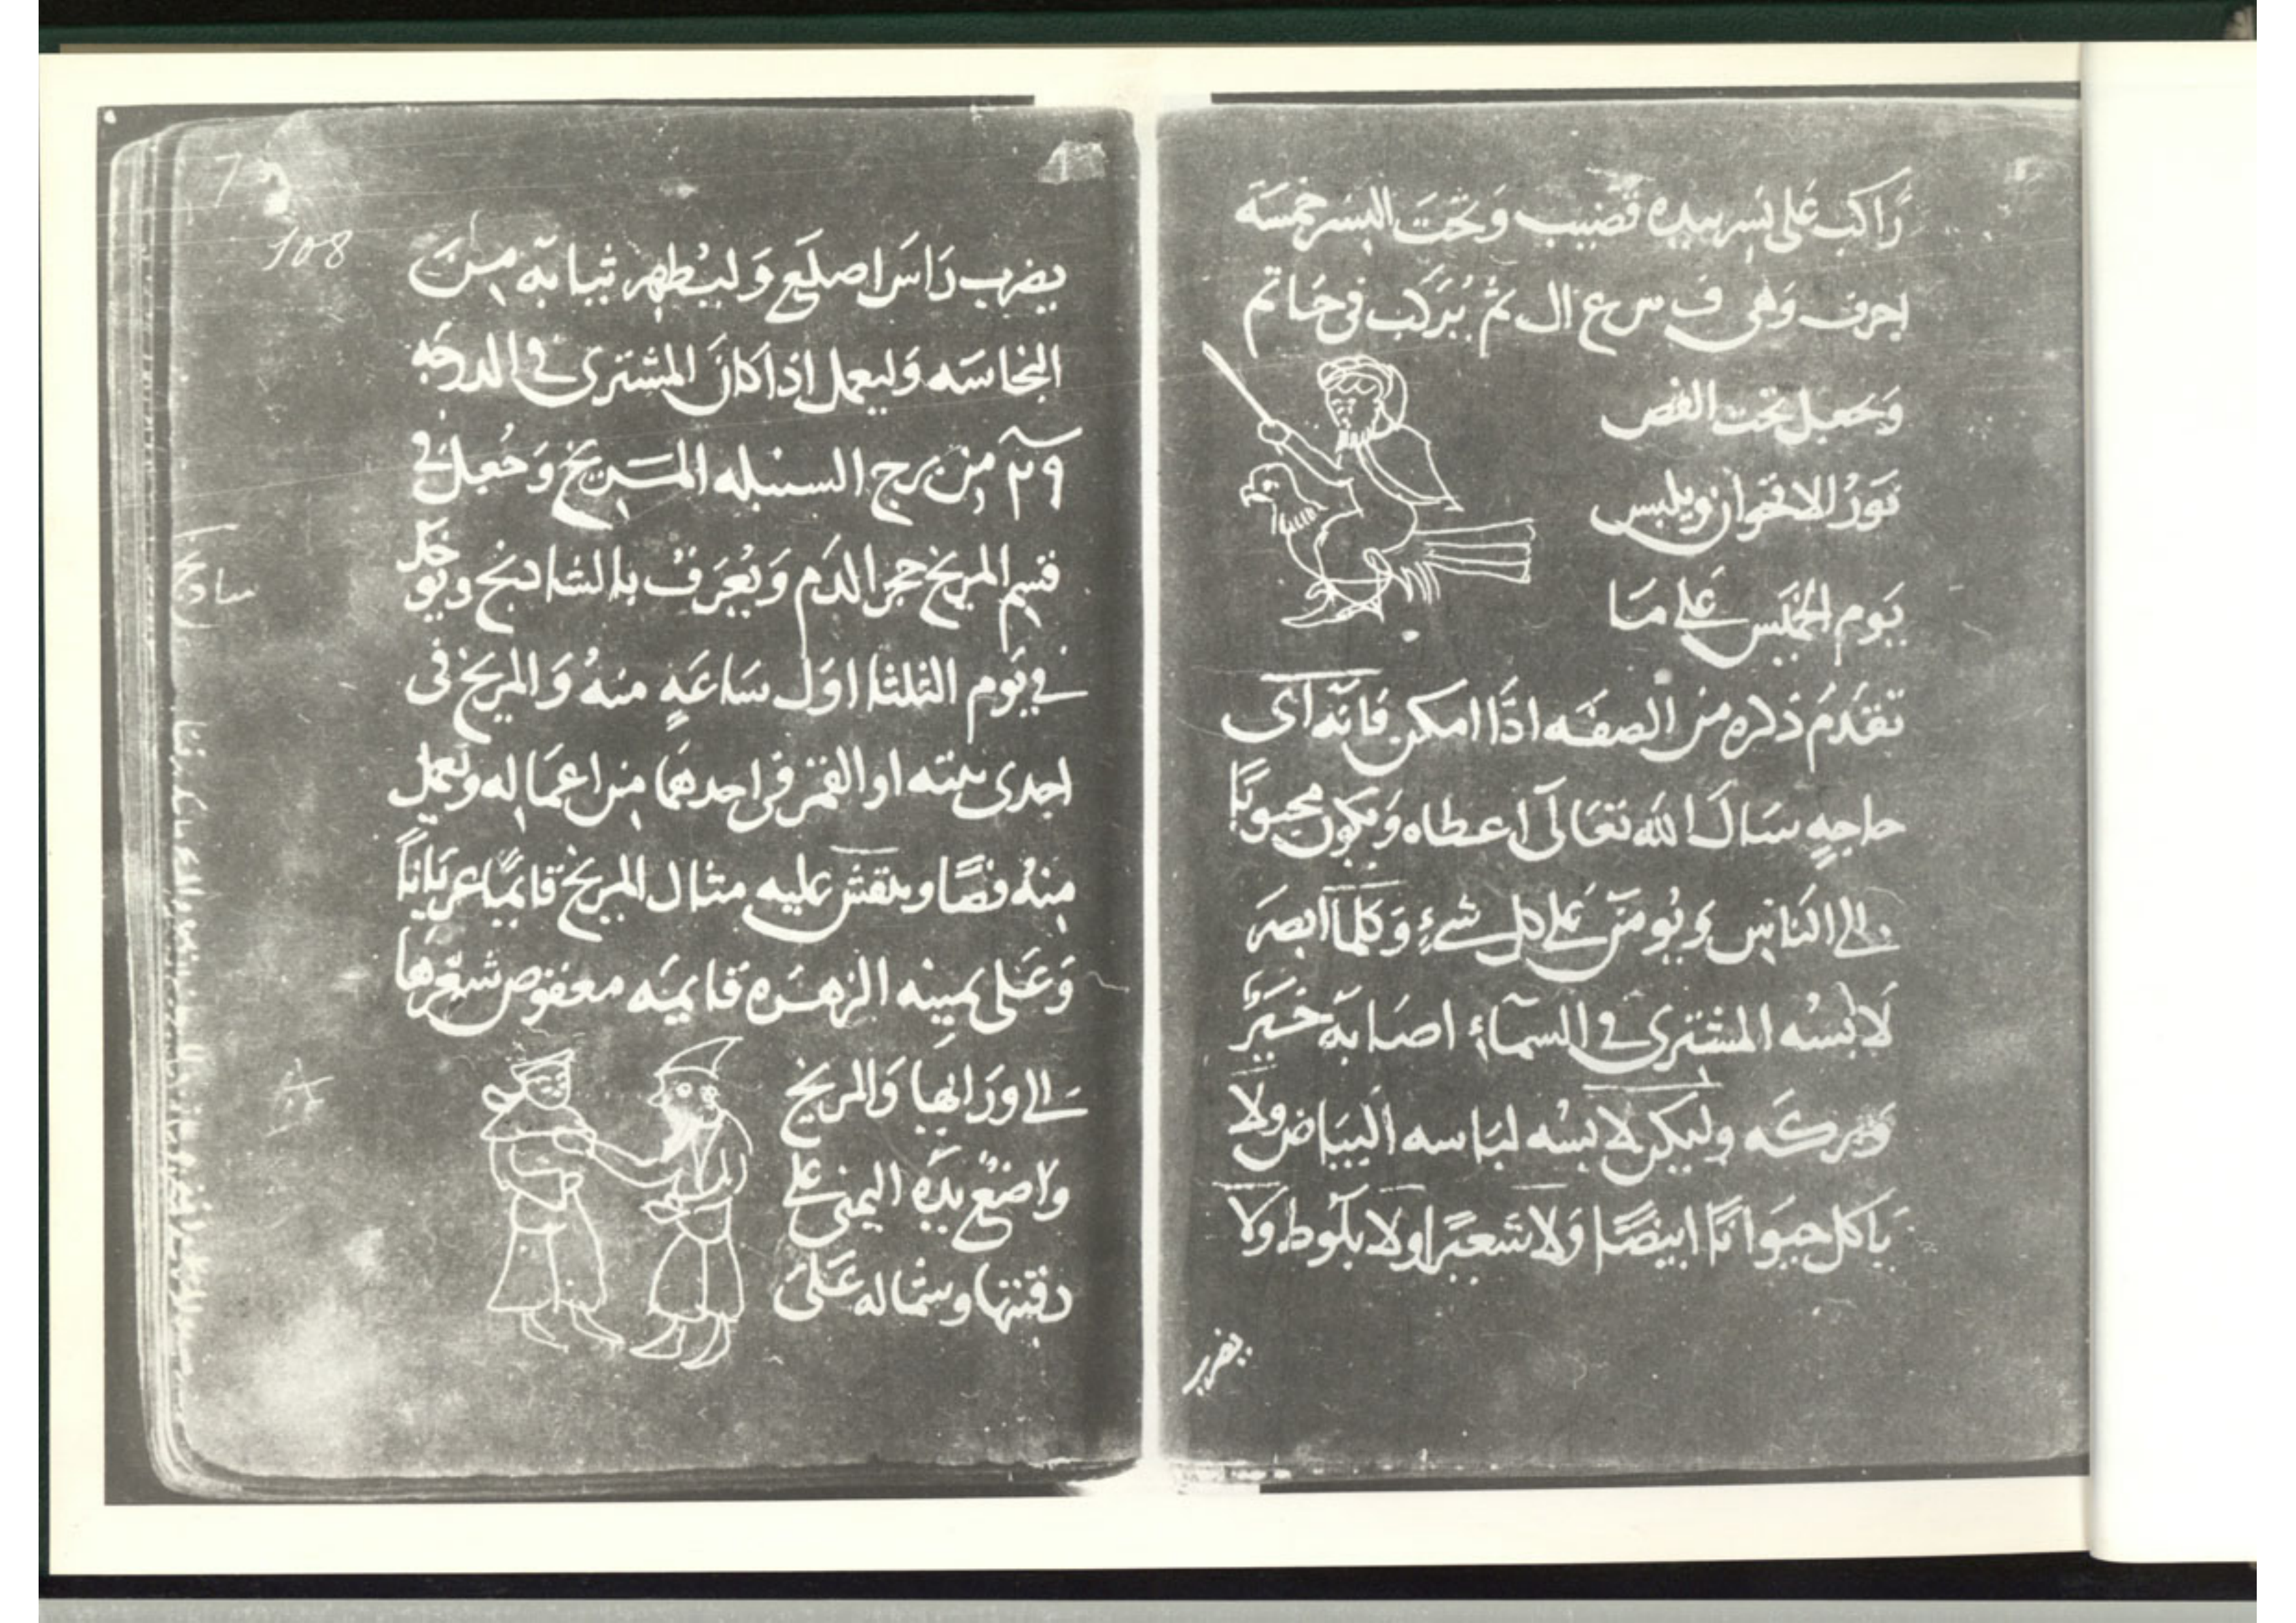 رَاكب عَلى نسر بيده قضيب وَتحَت النسر خمسَة
احرف وَهي ف س ع ال ثم يُركَب في خَاتم
وَجعل تحت الفص
نَورُ الاقحوان ويلبس
يَوم الخميَس عَلى مَا
تقَدمُ ذكره من الصفَه اذَا امكن فانَه آى
حاجةٍ سَال اَلله تَعَالَى اعطاه وَيكون محبوبًا
الى النَاس وَيُومَن عَلى كل شىءٍ وَكلمآ ابصَر
لَابسُه المشترى في السمآءِ اصَابَه خَيرٌ
وَبركَه وليكن لابسُه لبَاسه البيَاض ولَا
يَاكل حيَوانًا ابيضًا وَلا شَعيرًا ولا بلَوط وَلَا
يضرب
108
يضرب رَاسَ اصلَع وَليُطهر ثيابَه مِنَ
النجاسَه وَليعمل اِذا كانَ المشترى في الدرجَه
٢٩ من برج السنبله المَريخ وَجُعل في
قسم المريخ حجر الدَم وَيُعرَفُ بالشادنج ويوخَذ
في يَوم الثلثا اوَل سَاعَةٍ منهُ وَالمريخ في
احدى بيته او القمَر في احدهَما من اعمَاله وَيعمل
منهُ فصًا وينقش عليه مثال المريخ قايمًا عريَانًا
وَعَلى يمينه الزهَرة قَايمَه معقوص شَعرهَا
الى وَرَايها وَالمريخ
واضعٌ يدَه اليمنى عَلى
دقنها وشمَاله عَلَى